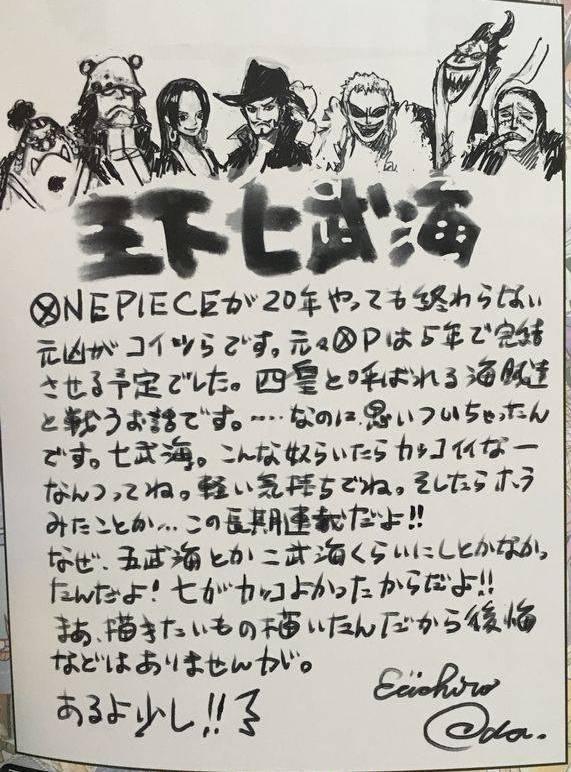 王下七武海
ⓍNE PIECEが20年やっても終わらない
元凶がコイツらです。元々ⓍPは5年で完結
させる予定でした。四皇と呼ばれる海賊達
と戦うお話です。……なのに思いついちゃったん
です。七武海。こんな奴らいたらカッコイイなー
なんつってね。軽い気持ちでね。そしたらホラ
みたことか…この長期連載だよ!!
なぜ、五武海とか二武海くらいにしとかなかっ
たんだよ!七がカッコよかったからだよ!!
まあ、描きたいもの描いたんだから後悔
などはありませんが。
あるよ少し!!
Eiichiro
Oda.